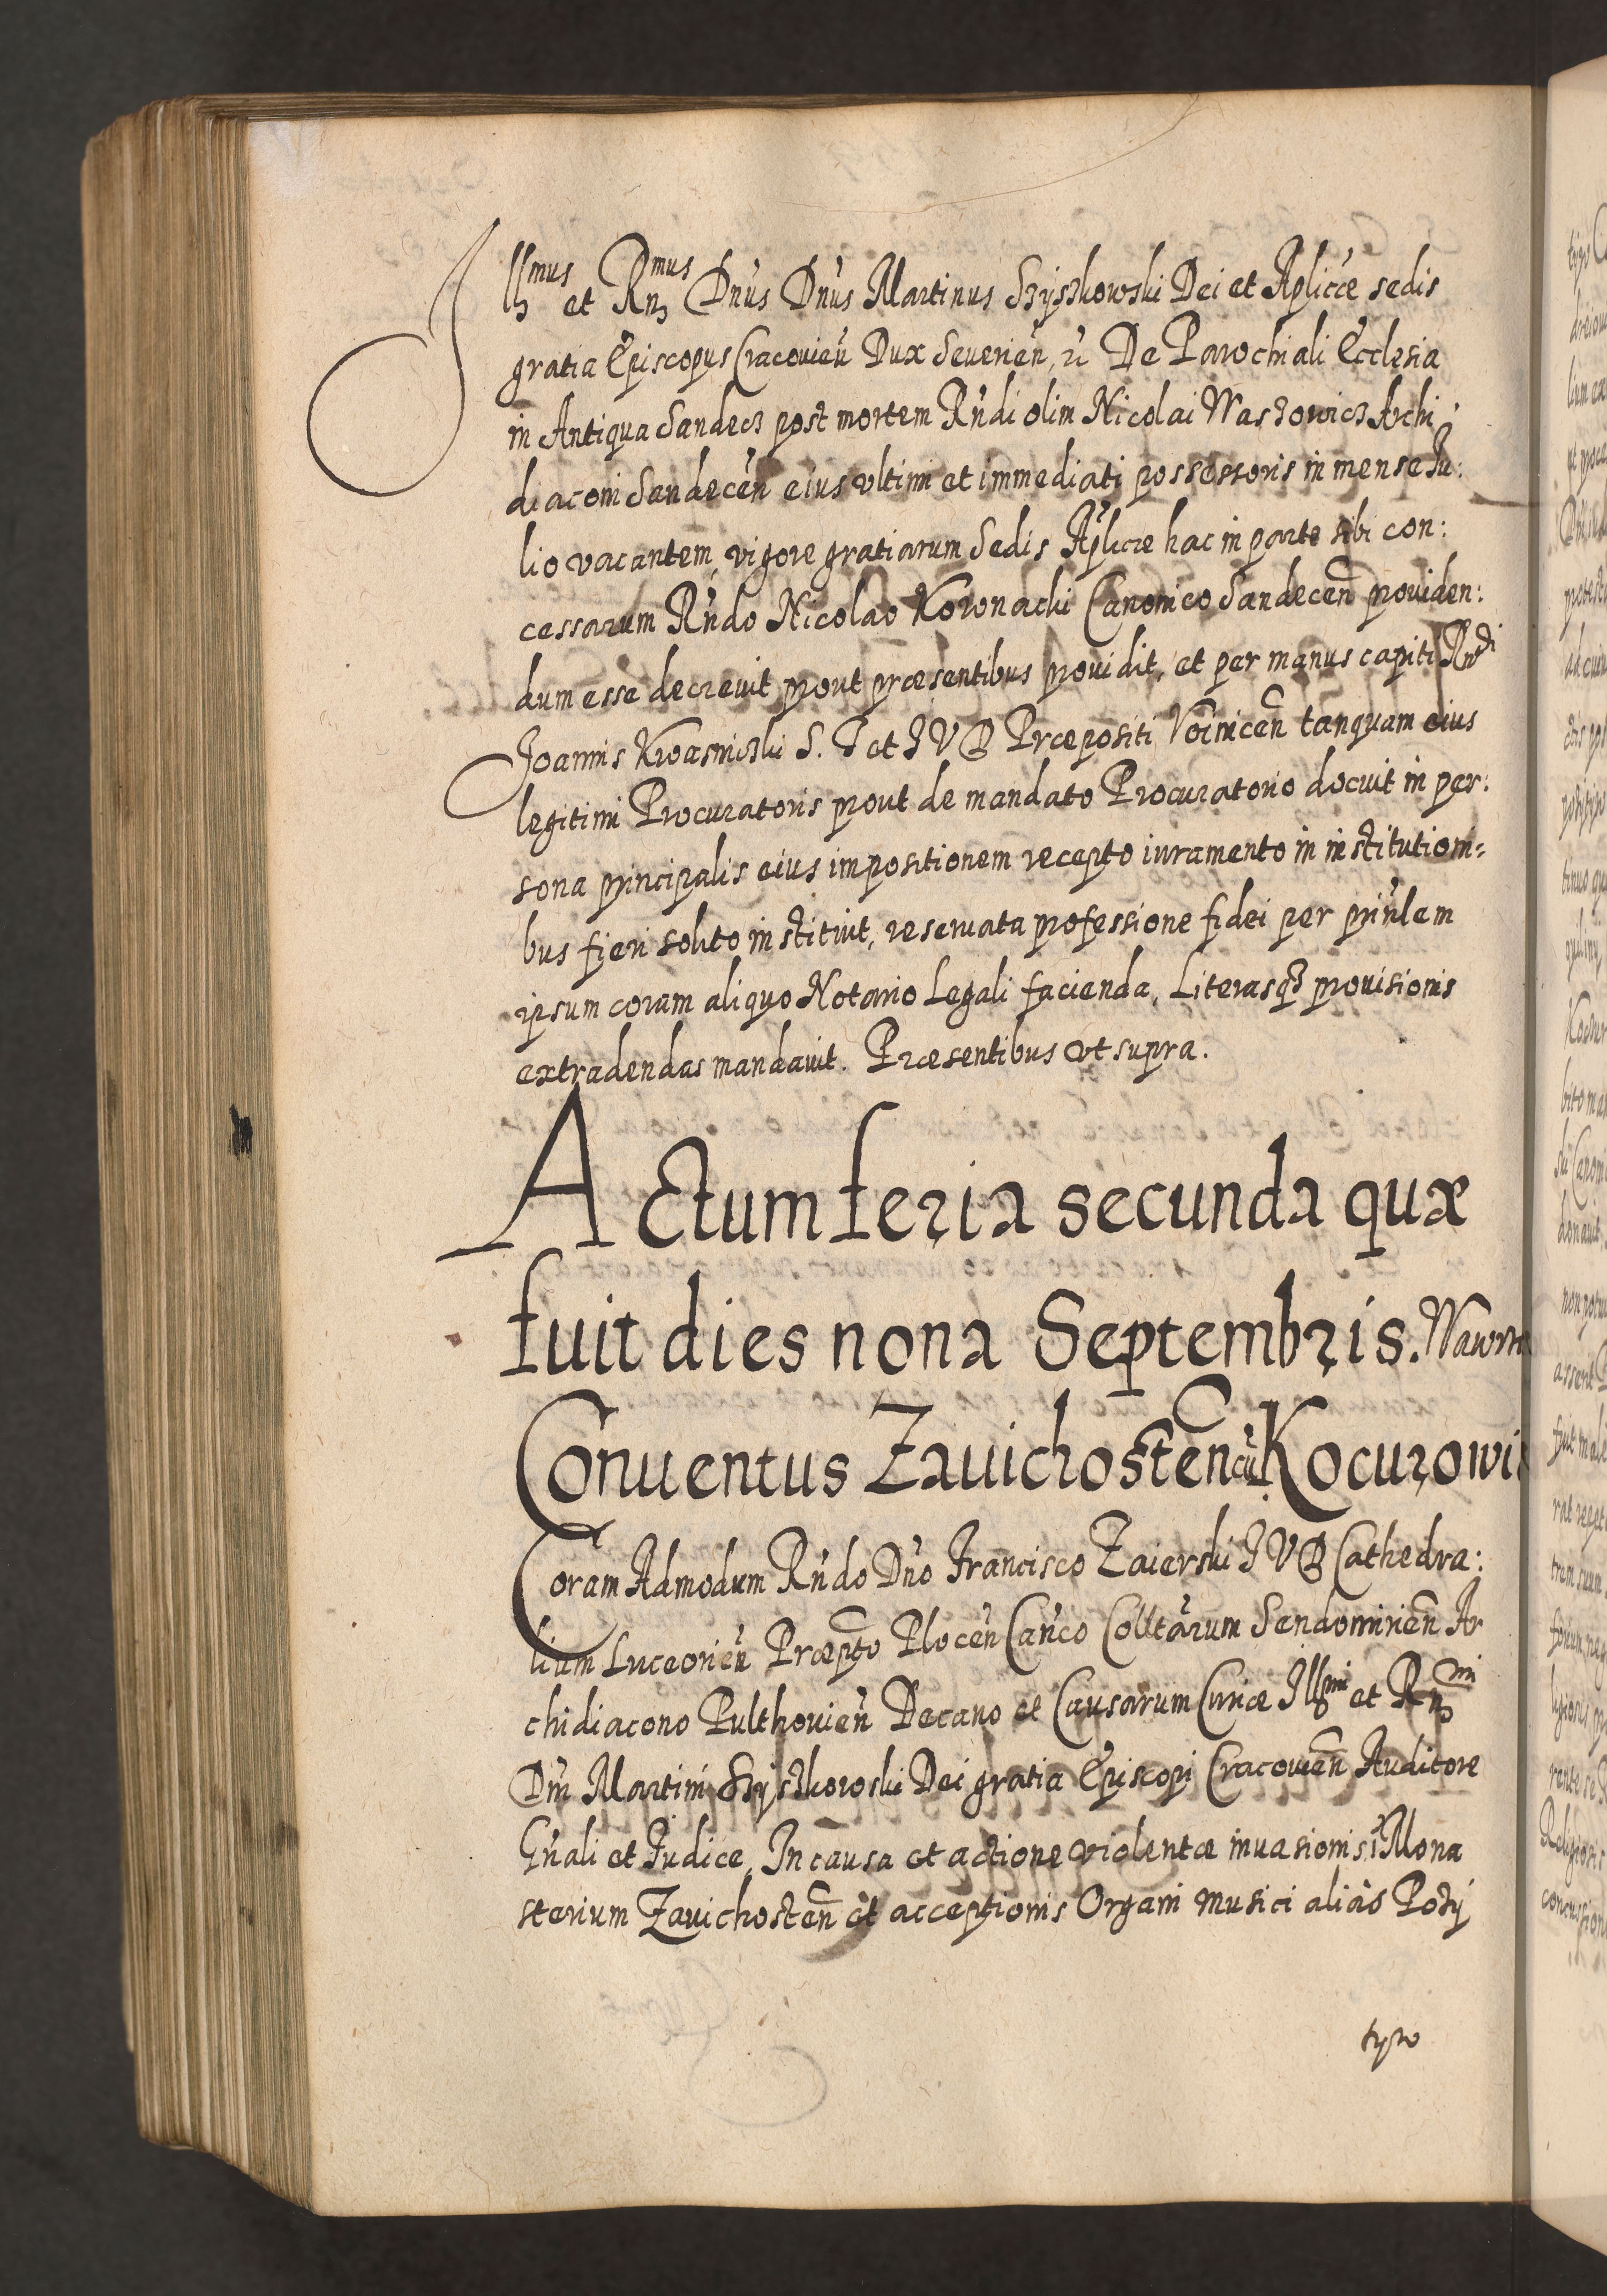 Illmus et Rndmus Dn̄us Dn̄us Martinus Szyszkowski Dei et Aplicæ sedis
gratia Episcopus Cracouien̄ Dux Seuerien̄, &c De Parochiali Ecclesia
in Antiqua Sandecz post mortem Rn̄di olim Nicolai Waszowicz Archi
diaconi Sandecen̄ eius vltimi et immediati possessoris in mense Iu:
lio vacantem, vigore gratiarum Sedis Aplicæ hac in parte sibi con:
cessarum Rn̄do Nicolao Koronacki Canonico Sandecen̄ prouiden:
dum esse decreuit prout præsentibus prouidit, et per manus capiti Rndi
Joannis Krasnicki S. T et I V D Præpositi Voinicen̄ tanquam eius
legitimi Procuratoris prout de mandato Procuratorio docuit in per:
sona principalis eius impositionem recepto iuramento in institutioni=
bus fieri solito instituit, reseruata professione fidei per prin̄lem
ipsum coram aliquo Notario Legali facienda, Literasqz prouisionis
extradendas mandauit. Præsentibus vt supra.
Actum feria secunda quæ
fuit dies nona Septembris.
Conuentus Zauichosten̄ cū Kocurowi
Coram Admodum Rn̄do Dn̄o Francisco Zaierski I V D Cathedra:
lium Luceorien̄ Præpto Plocen̄ Can̄co Colltarum Sendomirien̄ Ar
chidiacono Pulthouien̄ Decano et Causarum Curiæ Illmi et Rndmi
Dn̄i Martini Szyszkowski Dei gratia Episcopi Cracouien̄ Auditore
Gn̄ali et Iudice, In causa et actione violentæ inuasionis ī Mona
sterium Zauichosten̄ et acceptionis Organi musici aliàs Pozy
tywo